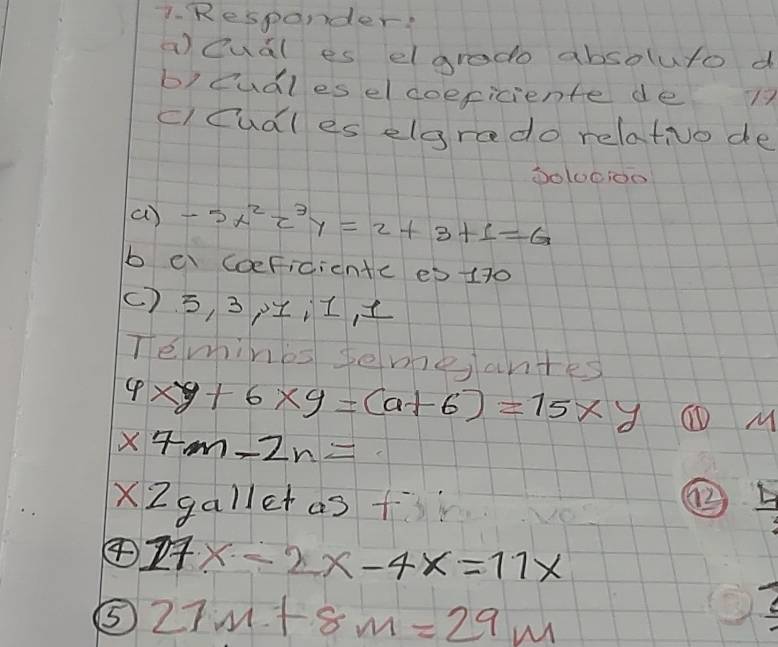 7. Responder:
a) Cuál es el grado absoluto d
b) Cuál es el coeficiente de 17
c) Cuál es el grado relativo de
Solucion
a) -3x²z³y = 2+3+1=6
b el coeficiente es 170
c) 5, 3, 1, 1, 1
Téminos semejantes
9xy + 6xy = (9+6) = 15xy ⑪ M
x 7m - 2n =
x 2 galletas ⑫
④ 17x - 2x - 4x = 11x
⑤ 21m + 8m = 29m